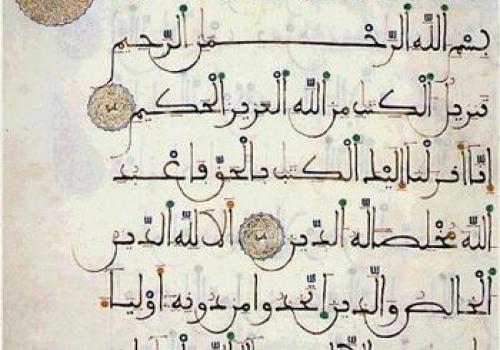 بسم الله الرّحمن الرّحيم
تنزيل الكتب من الله العزيز الحكيم
انّا انزلنا اليك الكتب بالحقّ فاعبد
الله مخلصا له الدّين الا لله الدّين
الخالص والّذين اتّخذوا من دونه اوليا